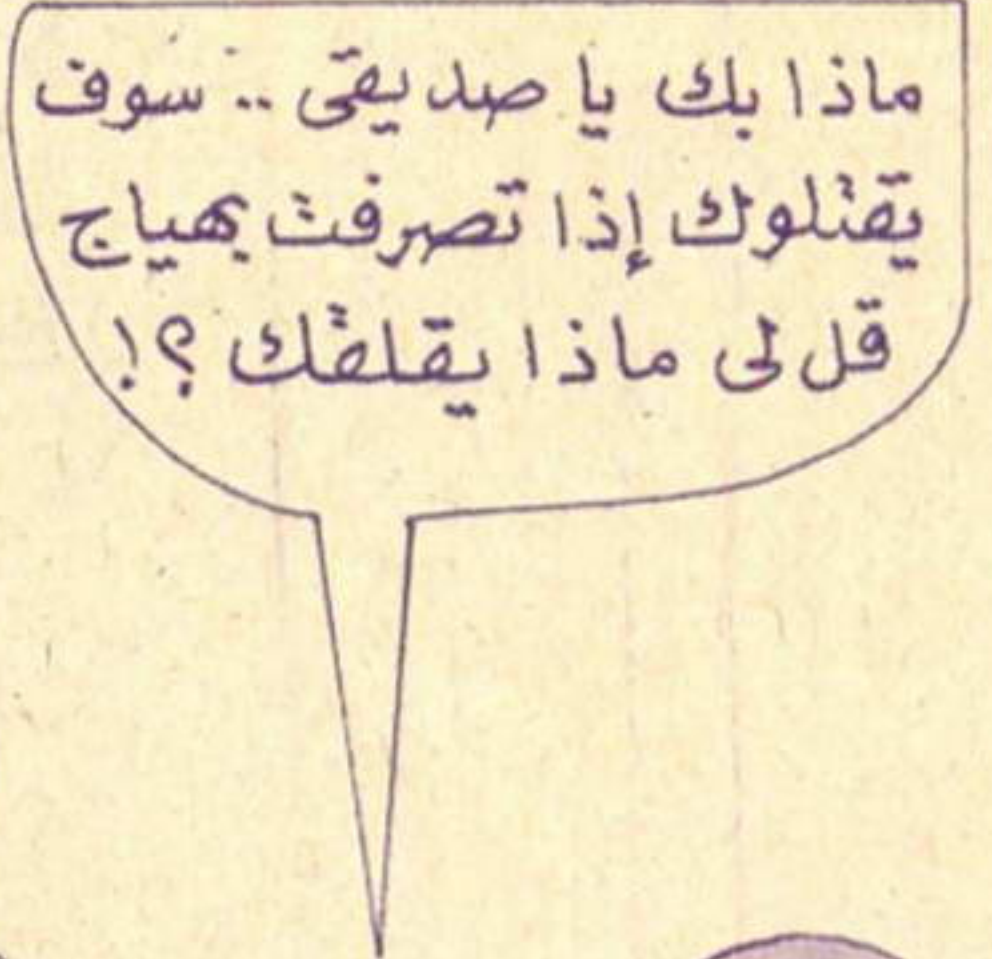 ماذا بك يا صديقى .. سوف
يقتلوك إذا تصرفت بهياج
قل لى ماذا يقلقك ؟!